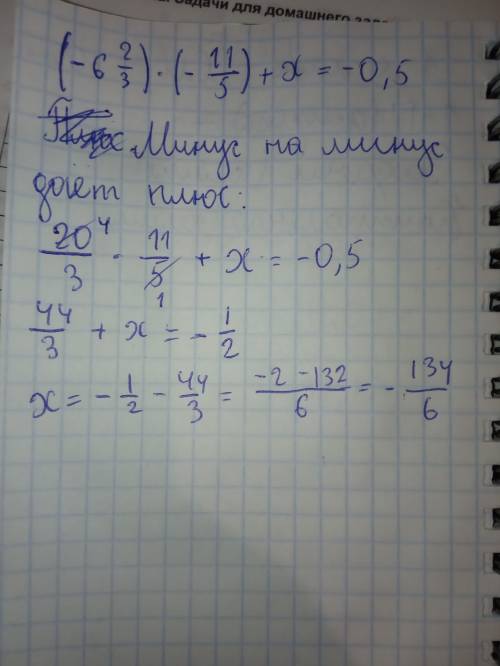 Задачи для домашнего зада
(-6 2/3) · (- 11/5) + x = -0,5
Минус на минус
дает плюс:
20/3 · 11/5 + x = -0,5
4 1
44/3 + x = - 1/2
x = - 1/2 - 44/3 = (-2 -132)/6 = - 134/6